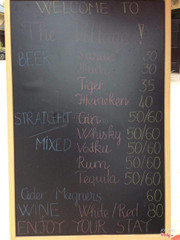 WELCOME TO
The
BEER 30
30
Tiger 35
Heineken 40
STRAIGHT Gin 50/60
Whisky 50/60
MIXED Vodka 50/60
Rum 50/60
Tequila 50/60
Cider Magners 60
WINE White/Red 80
ENJOY YOUR STAY